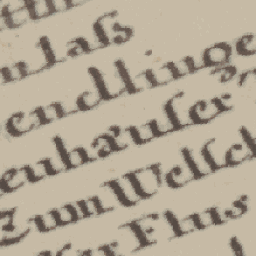 nlaſs
endlinge
euhäuſer
Zum Welſch
er Flus